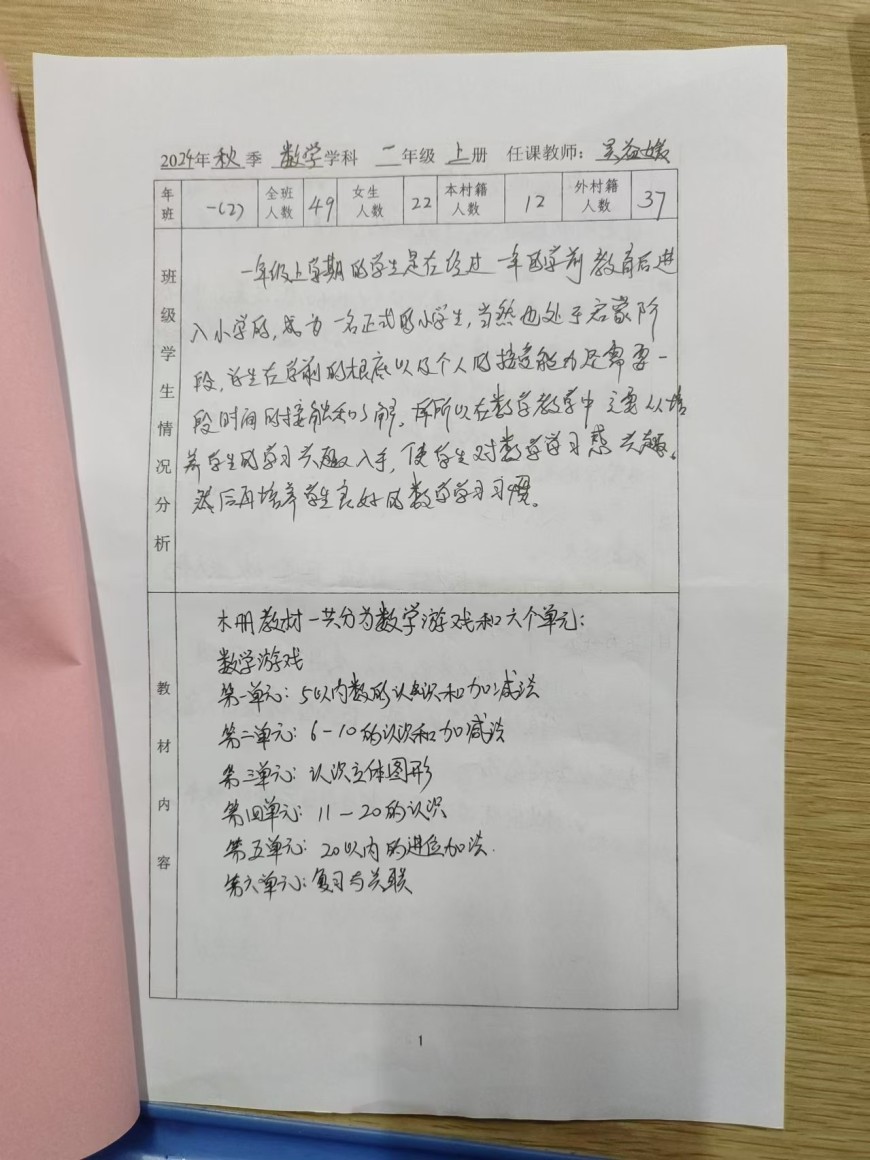 2024年秋季 数学学科 二年级上册 任课教师：吴益媛
年班 一(2) 全班人数 49 女生人数 22 本村籍人数 12 外村籍人数 37
班级学生情况分析
一年级上学期的学生是在经过一年的学前教育后进
入小学的，成为一名正式的小学生，当然也处于启蒙阶
段，学生在学前的根底以及个人的接受能力还需要一
段时间的接触和了解。所以在数学教学中主要从培
养学生的学习兴趣入手，使学生对数学学习感兴趣。
然后再培养学生良好的数学学习习惯。
教材内容
本册教材一共分为数学游戏和六个单元：
数学游戏
第一单元：5以内数的认识和加减法
第二单元：6-10的认识和加减法
第三单元：认识立体图形
第四单元：11-20的认识
第五单元：20以内的进位加法.
第六单元：复习与关联
1